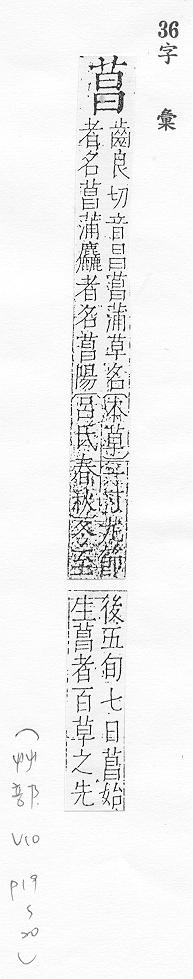 36字彙
菖
齒良切音昌菖蒲草名本草一寸九節
者名菖蒲麤者名菖陽呂氏春秋冬至
後五旬七日菖始
生菖者百草之先
(艸部 V10 p19 s 20)